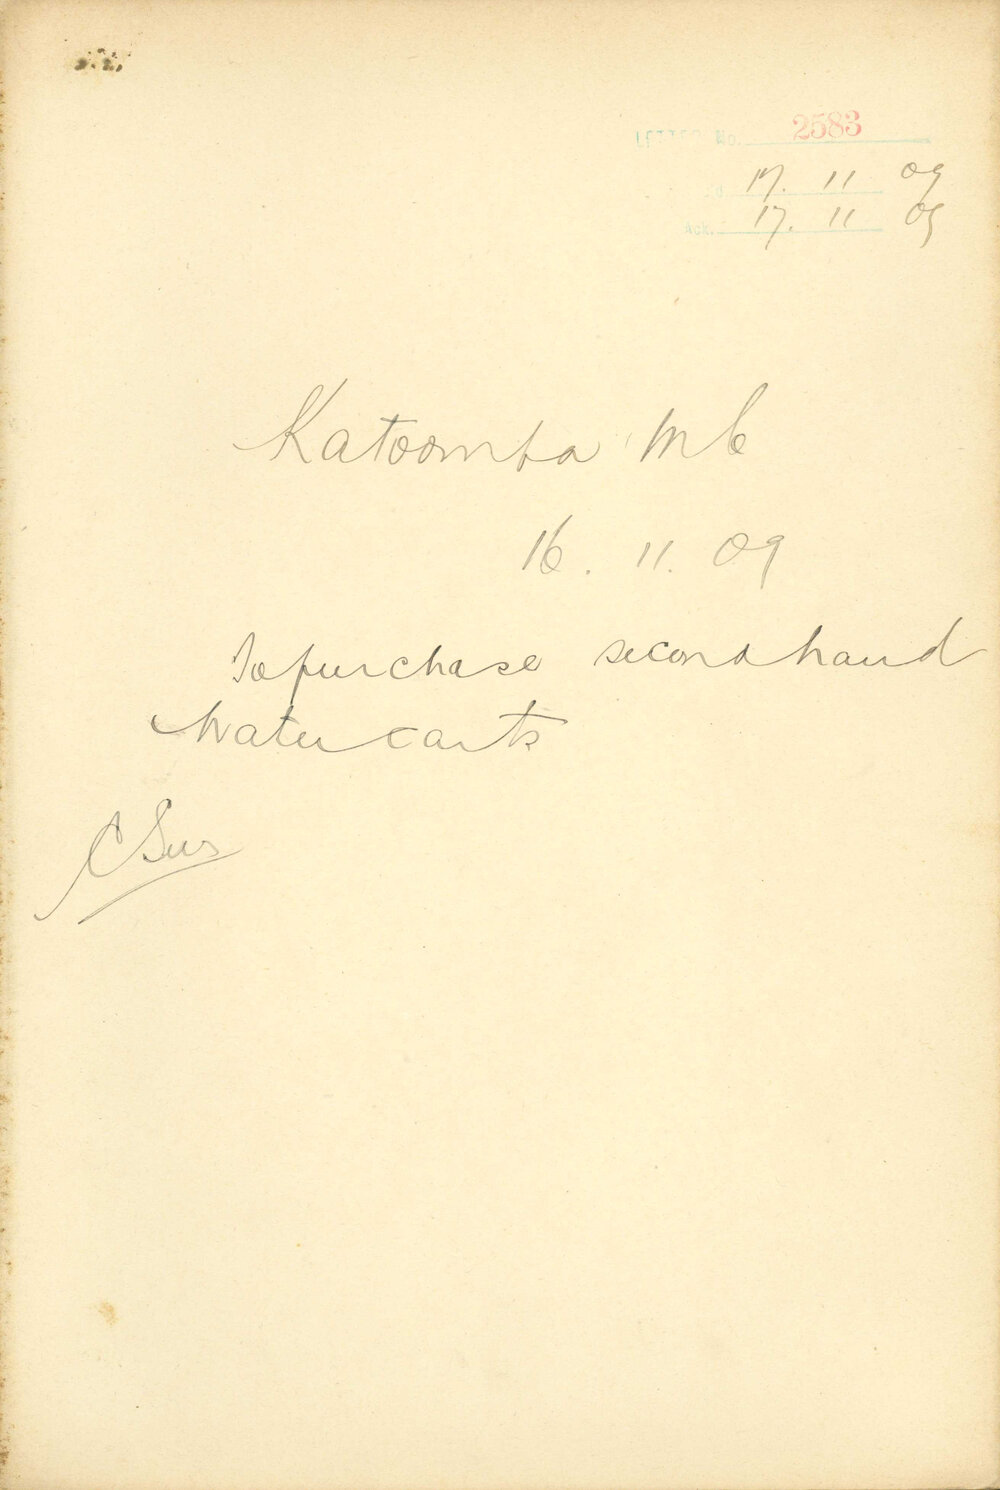 LETTER No. 2583
17. 11 09
Ack. 17. 11 09
Katoomba M C
16. 11. 09
To purchase second hand
Water carts
C Sur